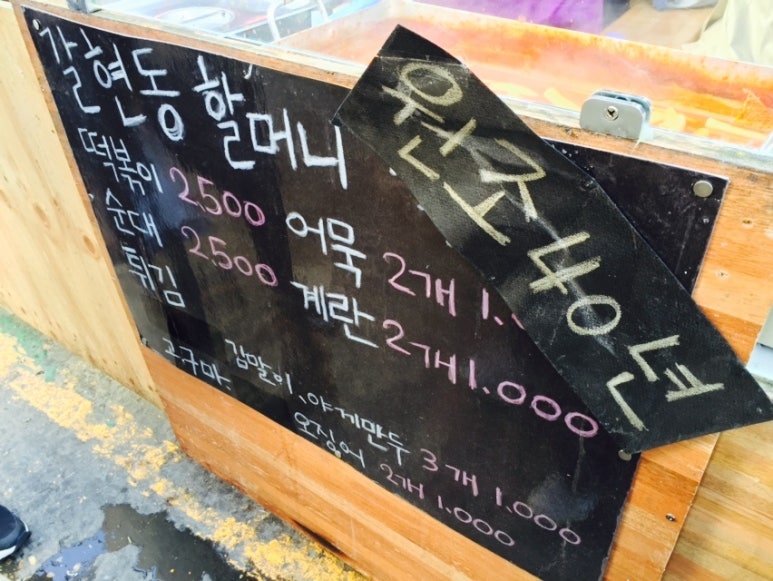 갈현동 할머니
원조 40년
떡볶이 2.500
순대 2.500
튀김
어묵 2개 1.
계란 2개 1.000
고구마, 김말이, 야끼만두 3개 1.000
오징어 2개 1.000